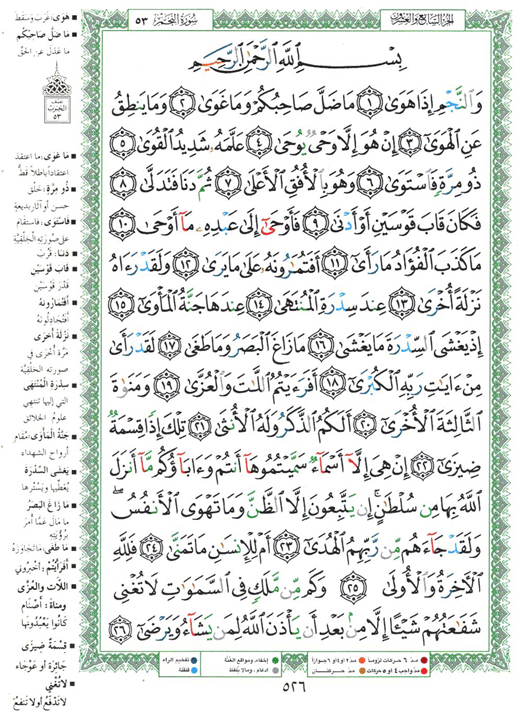 الجزء السابع والعشرون
سورة النجم ٥٣
بِسْمِ ٱللَّهِ ٱلرَّحْمَٰنِ ٱلرَّحِيمِ
وَٱلنَّجْمِ إِذَا هَوَىٰ ١ مَا ضَلَّ صَاحِبُكُمْ وَمَا غَوَىٰ ٢ وَمَا يَنطِقُ
عَنِ ٱلْهَوَىٰٓ ٣ إِنْ هُوَ إِلَّا وَحْىٌ يُوحَىٰ ٤ عَلَّمَهُۥ شَدِيدُ ٱلْقُوَىٰ ٥
ذُو مِرَّةٍ فَٱسْتَوَىٰ ٦ وَهُوَ بِٱلْأُفُقِ ٱلْأَعْلَىٰ ٧ ثُمَّ دَنَا فَتَدَلَّىٰ ٨
فَكَانَ قَابَ قَوْسَيْنِ أَوْ أَدْنَىٰ ٩ فَأَوْحَىٰٓ إِلَىٰ عَبْدِهِۦ مَآ أَوْحَىٰ ١٠
مَا كَذَبَ ٱلْفُؤَادُ مَا رَأَىٰٓ ١١ أَفَتُمَٰرُونَهُۥ عَلَىٰ مَا يَرَىٰ ١٢ وَلَقَدْ رَءَاهُ
نَزْلَةً أُخْرَىٰ ١٣ عِندَ سِدْرَةِ ٱلْمُنتَهَىٰ ١٤ عِندَهَا جَنَّةُ ٱلْمَأْوَىٰٓ ١٥
إِذْ يَغْشَى ٱلسِّدْرَةَ مَا يَغْشَىٰ ١٦ مَا زَاغَ ٱلْبَصَرُ وَمَا طَغَىٰ ١٧ لَقَدْ رَأَىٰ
مِنْ ءَايَٰتِ رَبِّهِ ٱلْكُبْرَىٰٓ ١٨ أَفَرَءَيْتُمُ ٱللَّٰتَ وَٱلْعُزَّىٰ ١٩ وَمَنَوٰةَ
ٱلثَّالِثَةَ ٱلْأُخْرَىٰٓ ٢٠ أَلَكُمُ ٱلذَّكَرُ وَلَهُ ٱلْأُنثَىٰ ٢١ تِلْكَ إِذًا قِسْمَةٌ
ضِيزَىٰٓ ٢٢ إِنْ هِىَ إِلَّآ أَسْمَآءٌ سَمَّيْتُمُوهَآ أَنتُمْ وَءَابَآؤُكُم مَّآ أَنزَلَ
ٱللَّهُ بِهَا مِن سُلْطَٰنٍ ۚ إِن يَتَّبِعُونَ إِلَّا ٱلظَّنَّ وَمَا تَهْوَى ٱلْأَنفُسُ ۖ
وَلَقَدْ جَآءَهُم مِّن رَّبِّهِمُ ٱلْهُدَىٰٓ ٢٣ أَمْ لِلْإِنسَٰنِ مَا تَمَنَّىٰ ٢٤ فَلِلَّهِ
ٱلْـَٔاخِرَةُ وَٱلْأُولَىٰ ٢٥ وَكَم مِّن مَّلَكٍ فِى ٱلسَّمَٰوَٰتِ لَا تُغْنِى
شَفَٰعَتُهُمْ شَيْـًٔا إِلَّا مِنۢ بَعْدِ أَن يَأْذَنَ ٱللَّهُ لِمَن يَشَآءُ وَيَرْضَىٰٓ ٢٦
هَوَى: غَرَبَ وَسَقَطَ
مَا ضَلَّ صَاحِبُكُم
ما عَدَل عن الحق
نصف
الحزب
٥٣
مَا غَوَى: ما اعتقد
اعتقاداً باطلاً قط
ذُو مِرَّةٍ: خَلْق
حسن أو آثار بديعة
فَاسْتَوَى: فاستقام
على صورته الخلقية
دَنَا: قَرُبَ
قَابَ قَوْسَيْنِ
قَدْرَ قَوْسَيْن
أفتمارونه
أفتجادلونه
نَزْلَةً أُخْرَى
مرَّة أخرى في
صورته الخلقية
سِدْرَةِ الْمُنْتَهَى
التي إليها تنتهي
علوم الخلائق
جَنَّةُ الْمَأْوَى: مُقام
أرواح الشهداء
يَغْشَى السِّدْرَة
يُغَطِّيها ويَسْتُرها
مَا زَاغَ الْبَصَرُ
ما مَالَ عَمَّا أُمر
برؤيته
مَا طَغَى: ما تجاوزه
أَفَرَأَيْتُمُ: أخبروني
اللَّاتَ وَالْعُزَّى
ومَناة: أصنام
كانُوا يَعْبُدُونها
قِسْمَةٌ ضِيزَى
جائرة أو عوجاء
لَا تُغْنِي
لا تدفع أو لا تنفع
مدّ ٦ حركات لزوماً مدّ ٢ أو ٤ أو ٦ جوازاً إخفاء، ومواقع الغُنَّة تفخيم الراء
مدّ واجب ٤ أو ٥ حركات مدّ حركتان إدغام، وما لا يُلفَظ قلقلة
٥٢٦